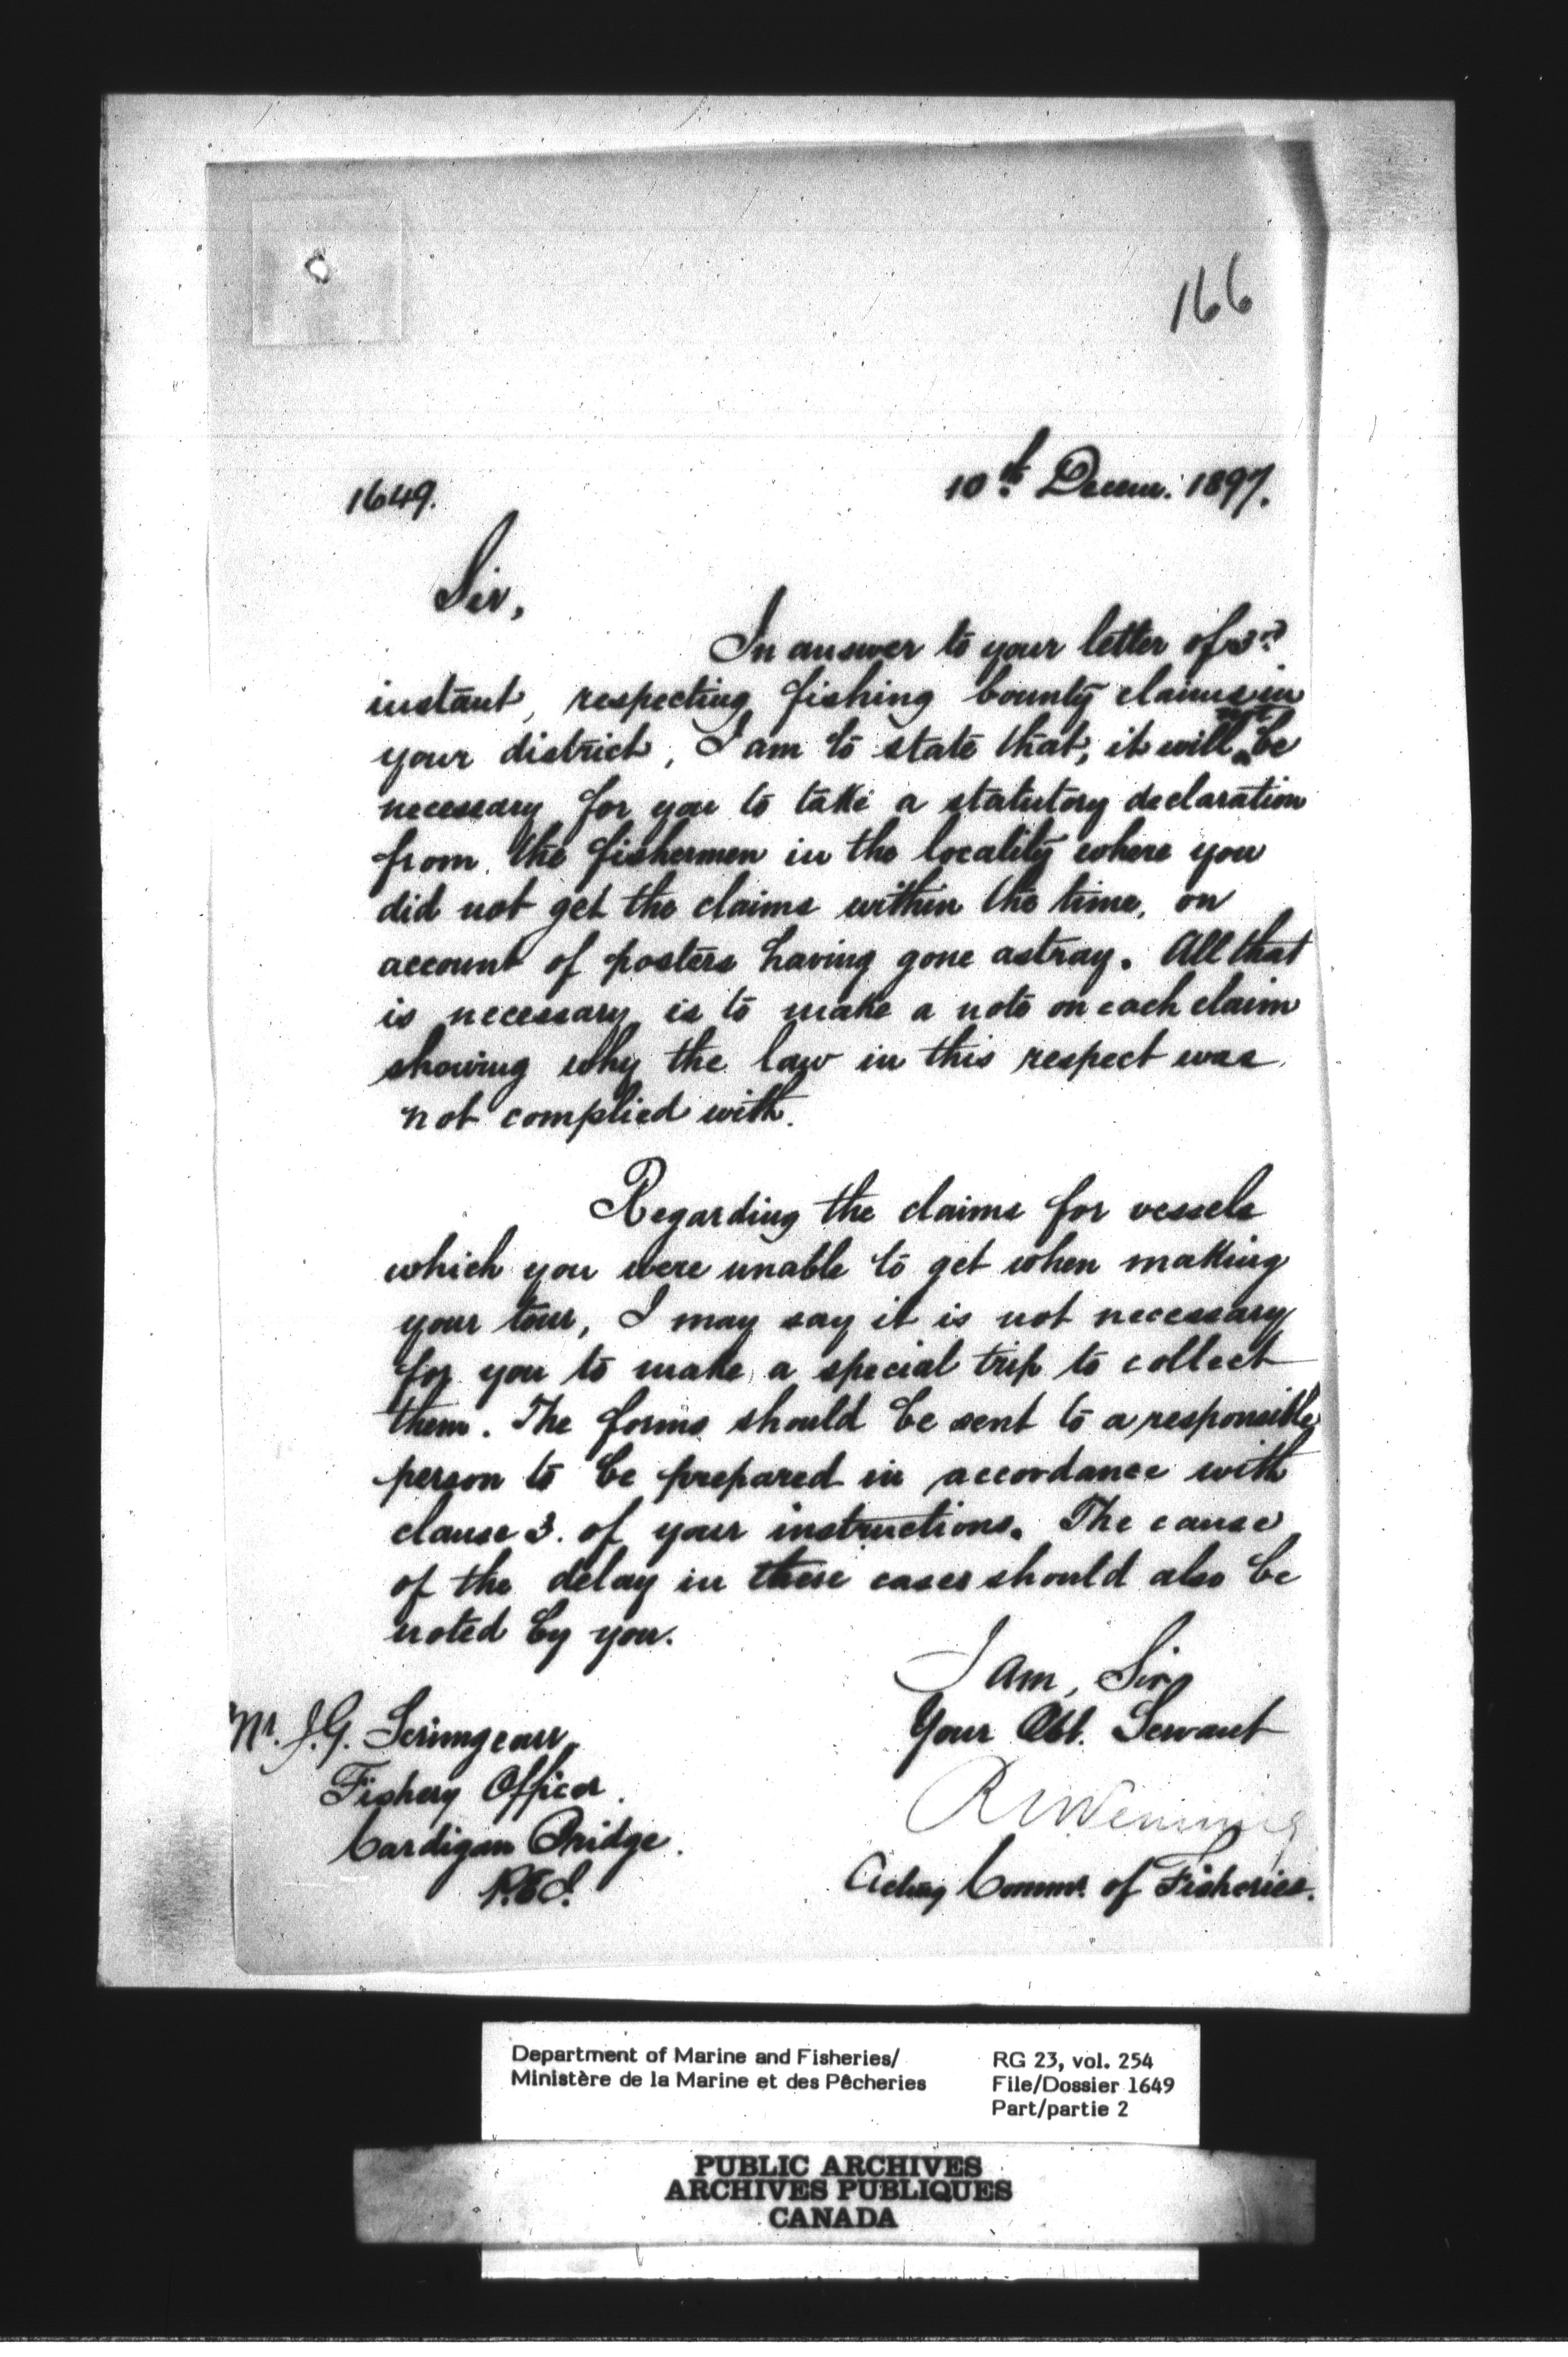 166
1649.
10th Decem. 1897.
Sir,
In answer to your letter of 3rd
instant, respecting fishing bounty claims in
your district, I am to state that, it will not be
necessary for you to take a statutory declaration
from the fishermen in the locality where you
did not get the claims within the time, on
account of posters having gone astray. All that
is necessary is to make a note on each claim
showing why the law in this respect was
not complied with.
Regarding the claims for vessels
which you were unable to get when making
your tour, I may say it is not necessary
for you to make a special trip to collect
them. The forms should be sent to a responsible
person to be prepared in accordance with
clause 3. of your instructions. The cause
of the delay in these cases should also be
noted by you.
I am, Sir,
Your Obt. Servant
Acting Commr. of Fisheries.
Mr. J.G. Scrimgeour,
Fishery Officer.
Cardigan Bridge.
P.E.I.
Department of Marine and Fisheries/
Ministère de la Marine et des Pêcheries
RG 23, vol. 254
File/Dossier 1649
Part/partie 2
PUBLIC ARCHIVES
ARCHIVES PUBLIQUES
CANADA